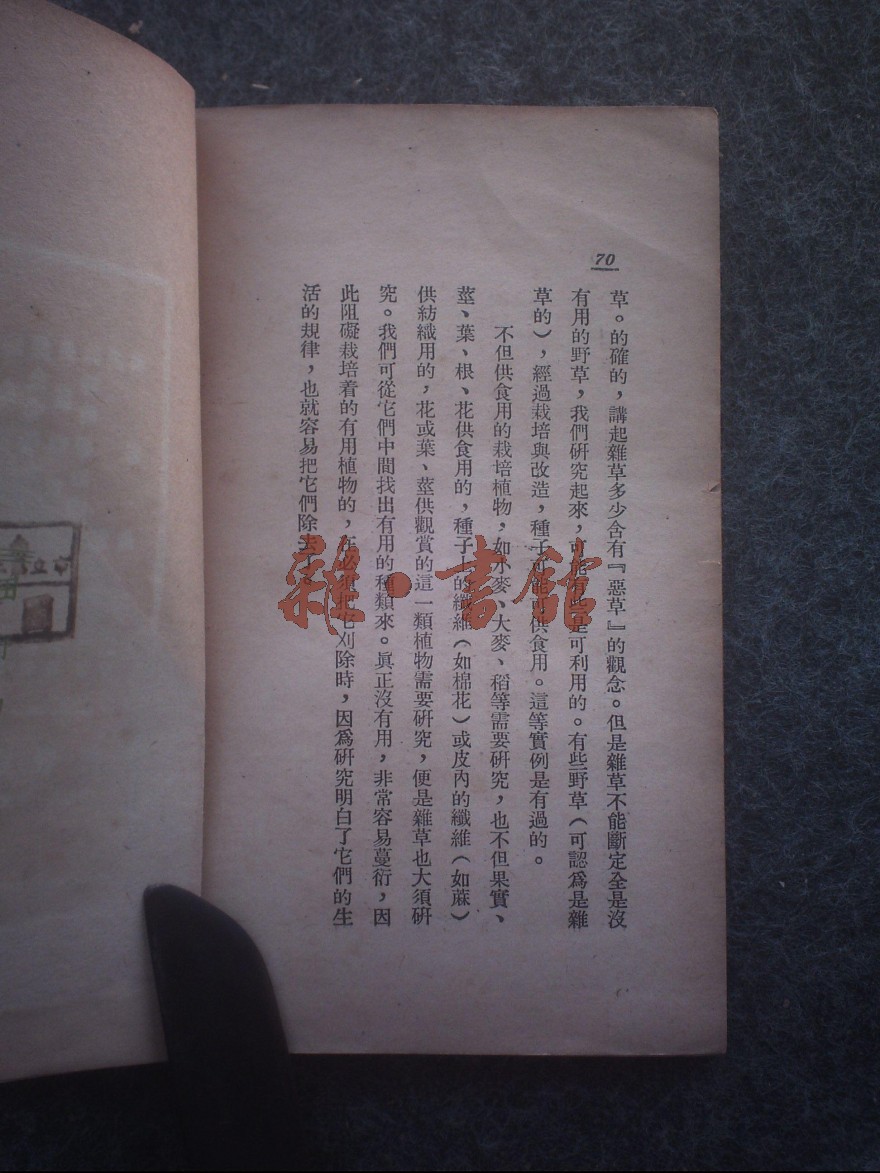 70
草。的確的，講起雜草多少含有『惡草』的觀念。但是雜草不能斷定全是沒
有用的野草，我們研究起來，可能有些是可利用的。有些野草（可認爲是雜
草的），經過栽培與改造，種子可能可供食用。這等實例是有過的。
不但供食用的栽培植物，如小麥、大麥、稻等需要研究，也不但果實、
莖、葉、根、花供食用的，種子上的纖維（如棉花）或皮內的纖維（如蔴）
供紡纖用的，花或葉、莖供觀賞的這一類植物需要研究，便是雜草也大須研
究。我們可從它們中間找出有用的種類來。眞正沒有用，非常容易蔓衍，因
此阻礙栽培着的有用植物的，在必須把它刈除時，因爲研究明白了它們的生
活的規律，也就容易把它們除去了。
雜·書館